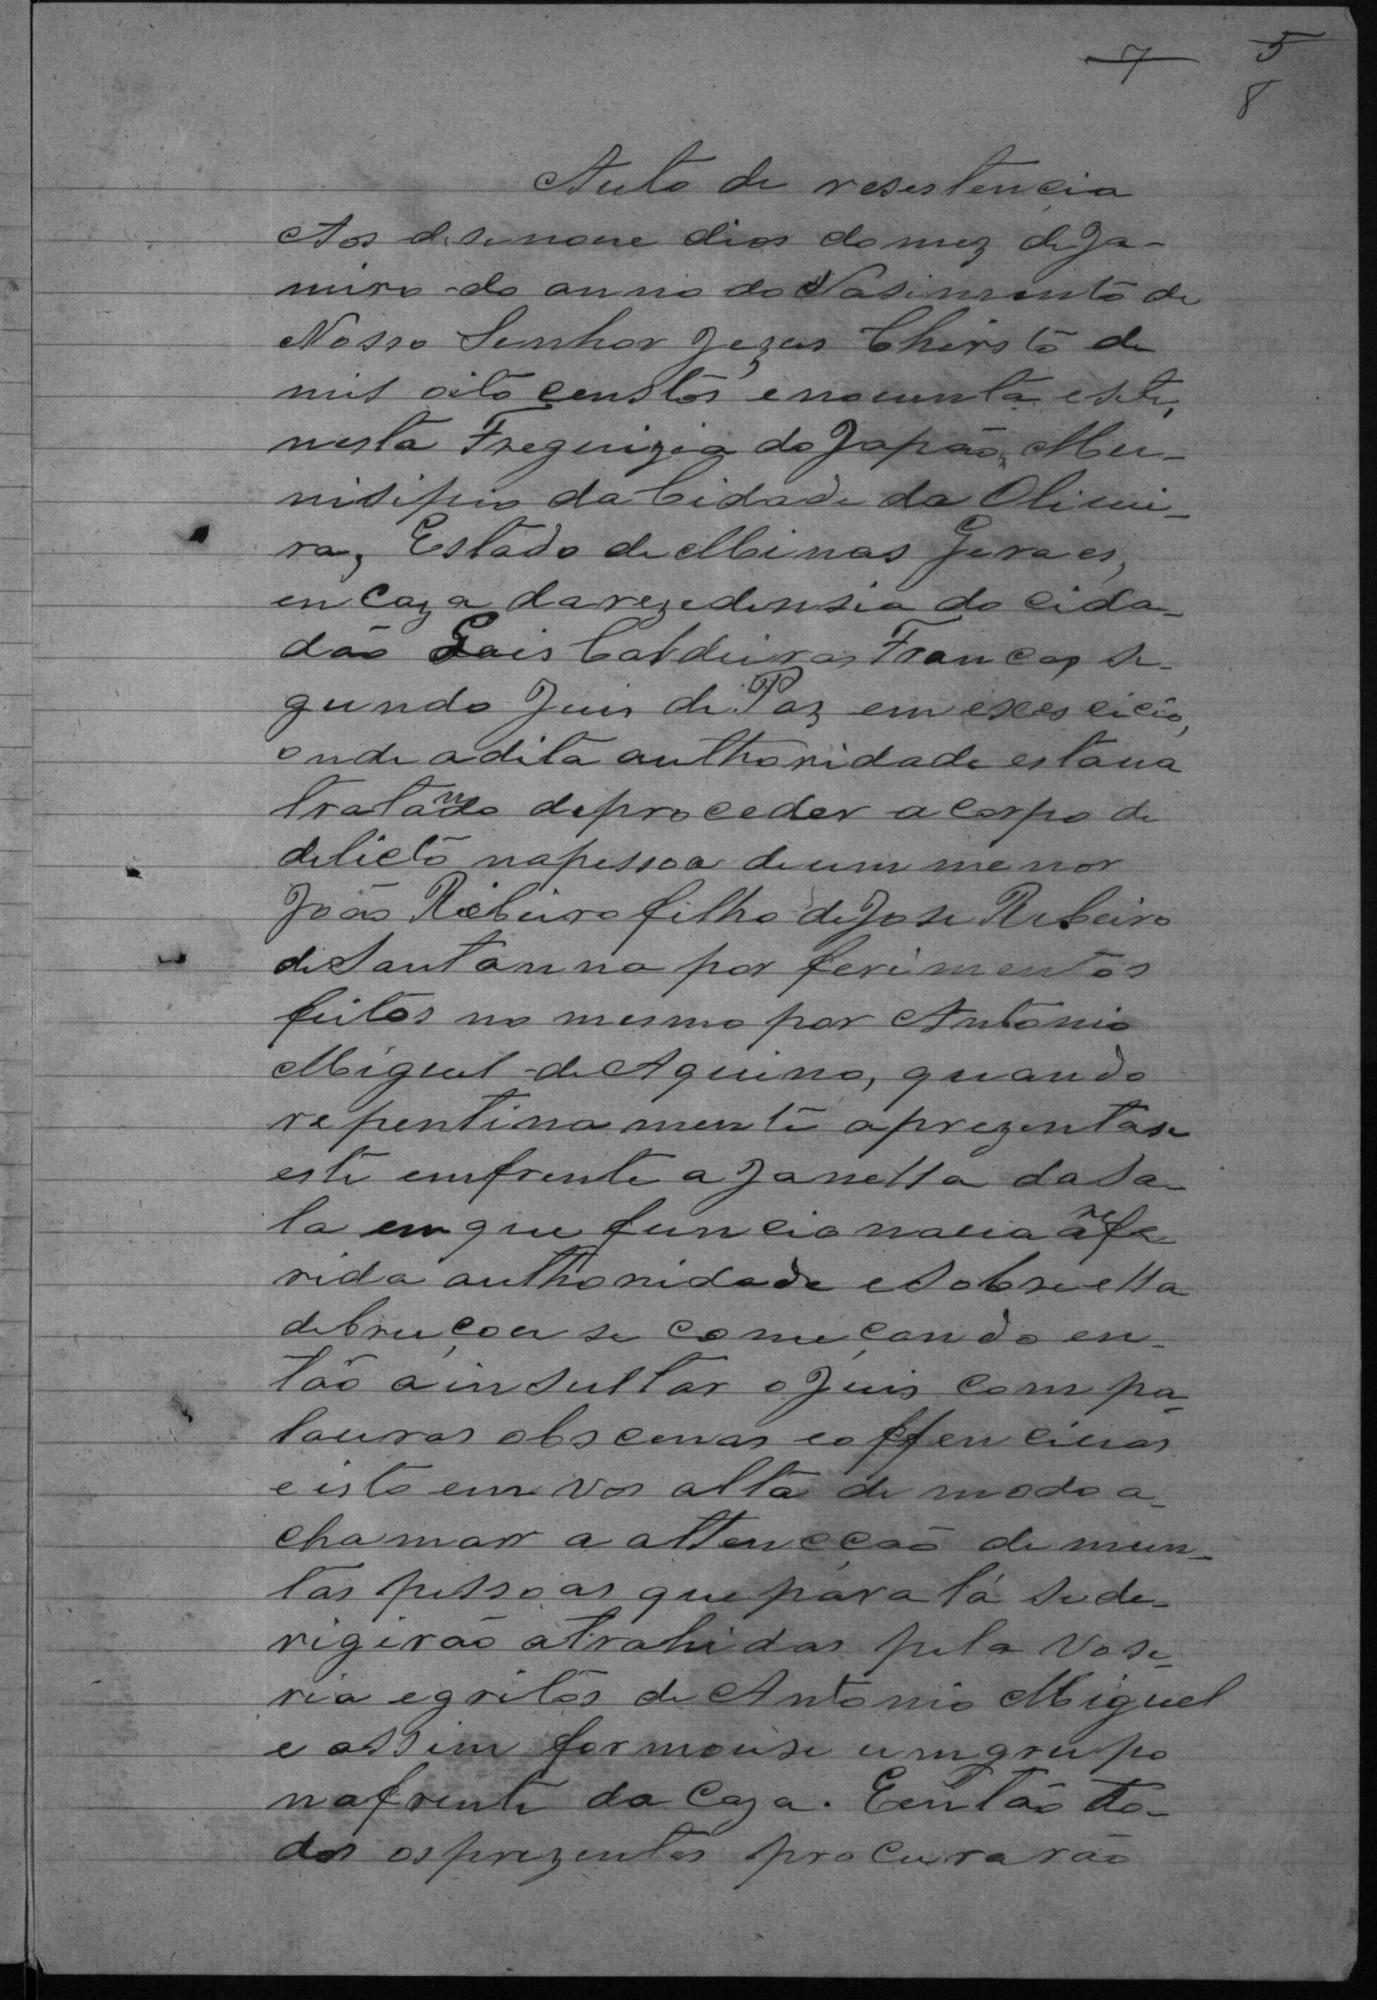 7 5
8
Auto de resestencia
Aos desenove dias do mez de Ja-
neiro do anno do Nasimento de
Nosso Senhor Jezus Chirsto de
mil oito centos e nouenta e sete,
nesta Freguizia do Japão, Mu-
nisipio da Cidade da Oliuei-
ra, Estado de Minas Geraes,
en caza da rezedensia do cida-
dão Luis Caldeiras Francas, se-
gundo Juis de Paz em exescicio,
onde a dita authoridade estaua
tratando de proceder a corpo de
delicto na pessoa de um menor
João Ribeiro filho de Jose Ribeiro
de Santanna por ferimentos
feitos no mesmo por Antonio
Miguel de Aquino, quando
repentinamente aprezentase
este emfrente a Janella da Sa-
la em que funcionaua a refe
rida authoridade e Sobre ella
debruçou se começando en-
tão a insultar o Juis com pa-
lauras obscenas e offencivas
e isto em vos alta de modo a-
chamar a attencção de mun-
tas pessoas que para lá se de-
rigirão atrahidas pela vose-
ria e gritos de Antonio Miguel
e assim formouse um grupo
na frente da Caza. Então to-
dos os prezentes procurarão